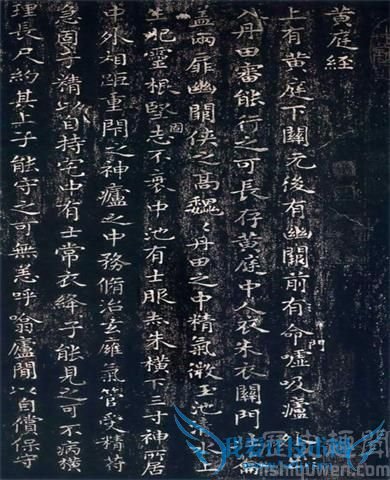 黄庭経
上有黃庭下關元後有幽闕前有命門噓吸廬
入丹田審能行之可長存黃庭中人衣朱衣關門
蓋兩扉幽闕俠之高魏〻丹田之中精氣微玉池水上
生肥靈根堅固志不衰中池有士服赤朱橫下三寸神所居
中外相距重閇之神廬之中務脩治玄廱氣管受精符
急固子精以自持宅中有士常衣絳子能見之可不病橫
理長尺約其上子能守之可無恙呼噏廬間以自償保守